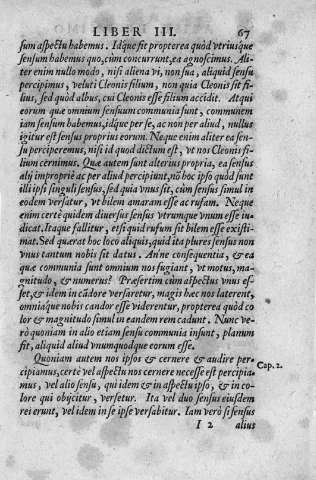 LIBER III. 67
sum aspectu habemus. Idque sit propterea quòd vtriusque
sensum habemus quo, cùm concurrunt, ea agnoscimus. Ali-
ter enim nullo modo, nisi aliena vi, non sua, aliquid sensu
percipimus, veluti Cleonis filium, non quia Cleonis sit fi-
lius, sed quòd albus, cui Cleonis esse filium accidit. Atqui
eorum quæ omnium sensuum communia sunt, communem
iam sensum habemus, idque per se, ac non per aliud, nullus
igitur est sensus proprius eorum. Neque enim aliter ea sen-
su perciperemus, nisi id quod dictum est, vt nos Cleonis fi-
lium cernimus. Quæ autem sunt alterius propria, ea sensus
alij impropriè ac per aliud percipiunt, nō hoc ipso quòd sunt
illi ipsi singuli sensus, sed quia vnus sit, cùm sensus simul in
eodem versatur, vt bilem amaram esse ac rufam. Neque
enim certè quidem diuersi sensus vtrumque vnum esse iu-
dicat. Itaque fallitur, etsi quid rufum sit bilem esse existi-
mat. Sed quærat hoc loco aliquis, quid ita plures sensus non
vnus tantum nobis sit datus. An ne consequentia, & ea
quæ communia sunt omnium nos fugiant, vt motus, mag-
nitudo, & numerus? Præsertim cùm aspectus vnus es-
set, & idem in cādore versaretur, magis hæc nos laterent,
omniaque nobis candor esse viderentur, propterea quòd co
lor & magnitudo simul in eandem rem cadunt. Nunc ve-
rò quoniam in alio etiam sensu communia insunt, planum
fit, aliquid aliud vnumquodque eorum esse.
Quoniam autem nos ipsos & cernere & audire per-
Cap. 2.
cipiamus, certè vel aspectu nos cernere necesse est percipia-
mus, vel alio sensu, qui idem & in aspectu ipso, & in co-
lore qui obijcitur, versetur. Ita vel duo sensus eiusdem
rei erunt, vel idem in se ipse versabitur. Iam verò si sensus
I 2 alius